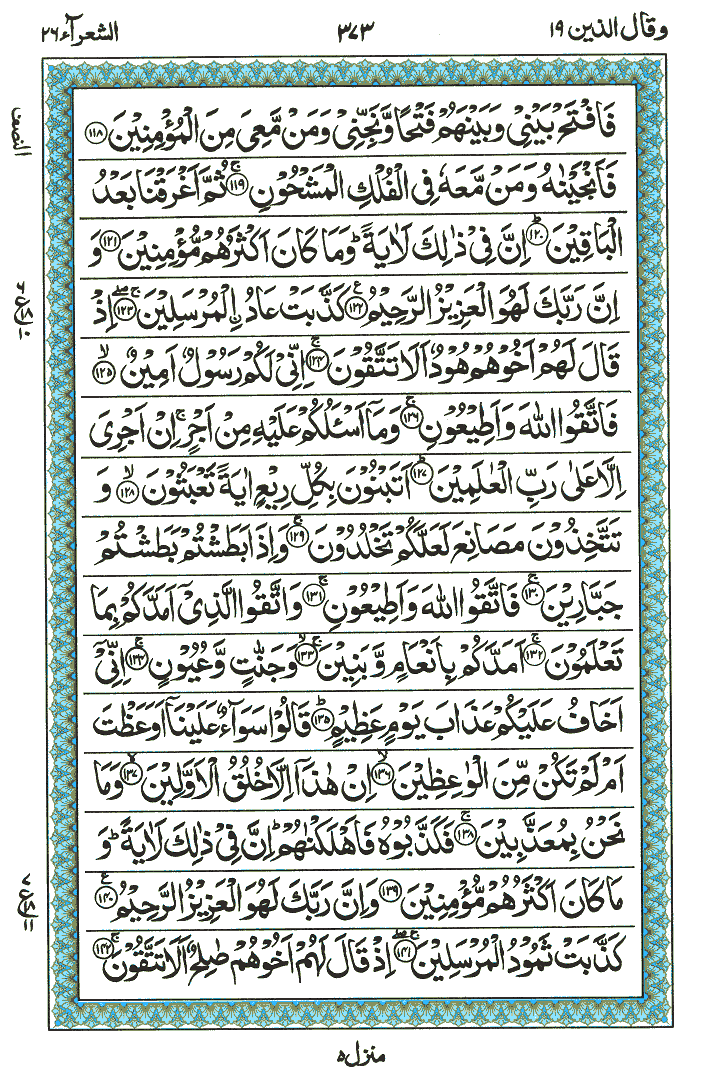 وقال الذين ١٩
٣٧٣
الشعرآء ٢٦
فَافْتَحْ بَيْنِىْ وَبَيْنَهُمْ فَتْحًا وَّنَجِّنِىْ وَمَنْ مَّعِىَ مِنَ الْمُؤْمِنِيْنَ ﴿۱۱۸﴾
النصف
فَاَنْجَيْنٰهُ وَمَنْ مَّعَهٗ فِى الْفُلْكِ الْمَشْحُوْنِ ۚ﴿۱۱۹﴾ ثُمَّ اَغْرَقْنَا بَعْدُ
الْبَاقِيْنَ ؕ﴿۱۲۰﴾ اِنَّ فِىْ ذٰلِكَ لَاٰيَةً ؕ وَمَا كَانَ اَكْثَرُهُمْ مُّؤْمِنِيْنَ ﴿۱۲۱﴾ وَ
اِنَّ رَبَّكَ لَهُوَ الْعَزِيْزُ الرَّحِيْمُ ﴿۱۲۲﴾ كَذَّبَتْ عَادُ ۨالْمُرْسَلِيْنَ ۚۖ﴿۱۲۳﴾ اِذْ
قَالَ لَهُمْ اَخُوْهُمْ هُوْدٌ اَلَا تَتَّقُوْنَ ۚ﴿۱۲۴﴾ اِنِّىْ لَكُمْ رَسُوْلٌ اَمِيْنٌ ۙ﴿۱۲۵﴾
فَاتَّقُوا اللّٰهَ وَاَطِيْعُوْنِ ۚ﴿۱۲۶﴾ وَمَاۤ اَسْـَٔلُكُمْ عَلَيْهِ مِنْ اَجْرٍ ۚ اِنْ اَجْرِىَ
اِلَّا عَلٰى رَبِّ الْعٰلَمِيْنَ ؕ﴿۱۲۷﴾ اَتَبْنُوْنَ بِكُلِّ رِيْعٍ اٰيَةً تَعْبَثُوْنَ ۙ﴿۱۲۸﴾ وَ
تَتَّخِذُوْنَ مَصَانِعَ لَعَلَّكُمْ تَخْلُدُوْنَ ۚ﴿۱۲۹﴾ وَاِذَا بَطَشْتُمْ بَطَشْتُمْ
جَبَّارِيْنَ ۚ﴿۱۳۰﴾ فَاتَّقُوا اللّٰهَ وَاَطِيْعُوْنِ ۚ﴿۱۳۱﴾ وَاتَّقُوا الَّذِىْۤ اَمَدَّكُمْ بِمَا
تَعْلَمُوْنَ ۚ﴿۱۳۲﴾ اَمَدَّكُمْ بِاَنْعَامٍ وَّبَنِيْنَ ۚۙ﴿۱۳۳﴾ وَجَنّٰتٍ وَّعُيُوْنٍ ۚ﴿۱۳۴﴾ اِنِّىْۤ
اَخَافُ عَلَيْكُمْ عَذَابَ يَوْمٍ عَظِيْمٍ ؕ﴿۱۳۵﴾ قَالُوْا سَوَآءٌ عَلَيْنَاۤ اَوَعَظْتَ
اَمْ لَمْ تَكُنْ مِّنَ الْوٰعِظِيْنَ ۙ﴿۱۳۶﴾ اِنْ هٰذَاۤ اِلَّا خُلُقُ الْاَوَّلِيْنَ ۙ﴿۱۳۷﴾ وَمَا
نَحْنُ بِمُعَذَّبِيْنَ ۚ﴿۱۳۸﴾ فَكَذَّبُوْهُ فَاَهْلَكْنٰهُمْ ؕ اِنَّ فِىْ ذٰلِكَ لَاٰيَةً ؕ وَ
مَا كَانَ اَكْثَرُهُمْ مُّؤْمِنِيْنَ ﴿۱۳۹﴾ وَاِنَّ رَبَّكَ لَهُوَ الْعَزِيْزُ الرَّحِيْمُ ﴿۱۴۰﴾
كَذَّبَتْ ثَمُوْدُ الْمُرْسَلِيْنَ ۚۖ﴿۱۴۱﴾ اِذْ قَالَ لَهُمْ اَخُوْهُمْ صٰلِحٌ اَلَا تَتَّقُوْنَ ۚ﴿۱۴۲﴾
منزل ٥